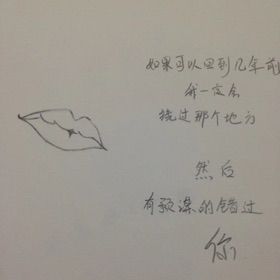 如果可以回到几年前
我一定会
绕过那个地方
然后
有预谋的错过
你